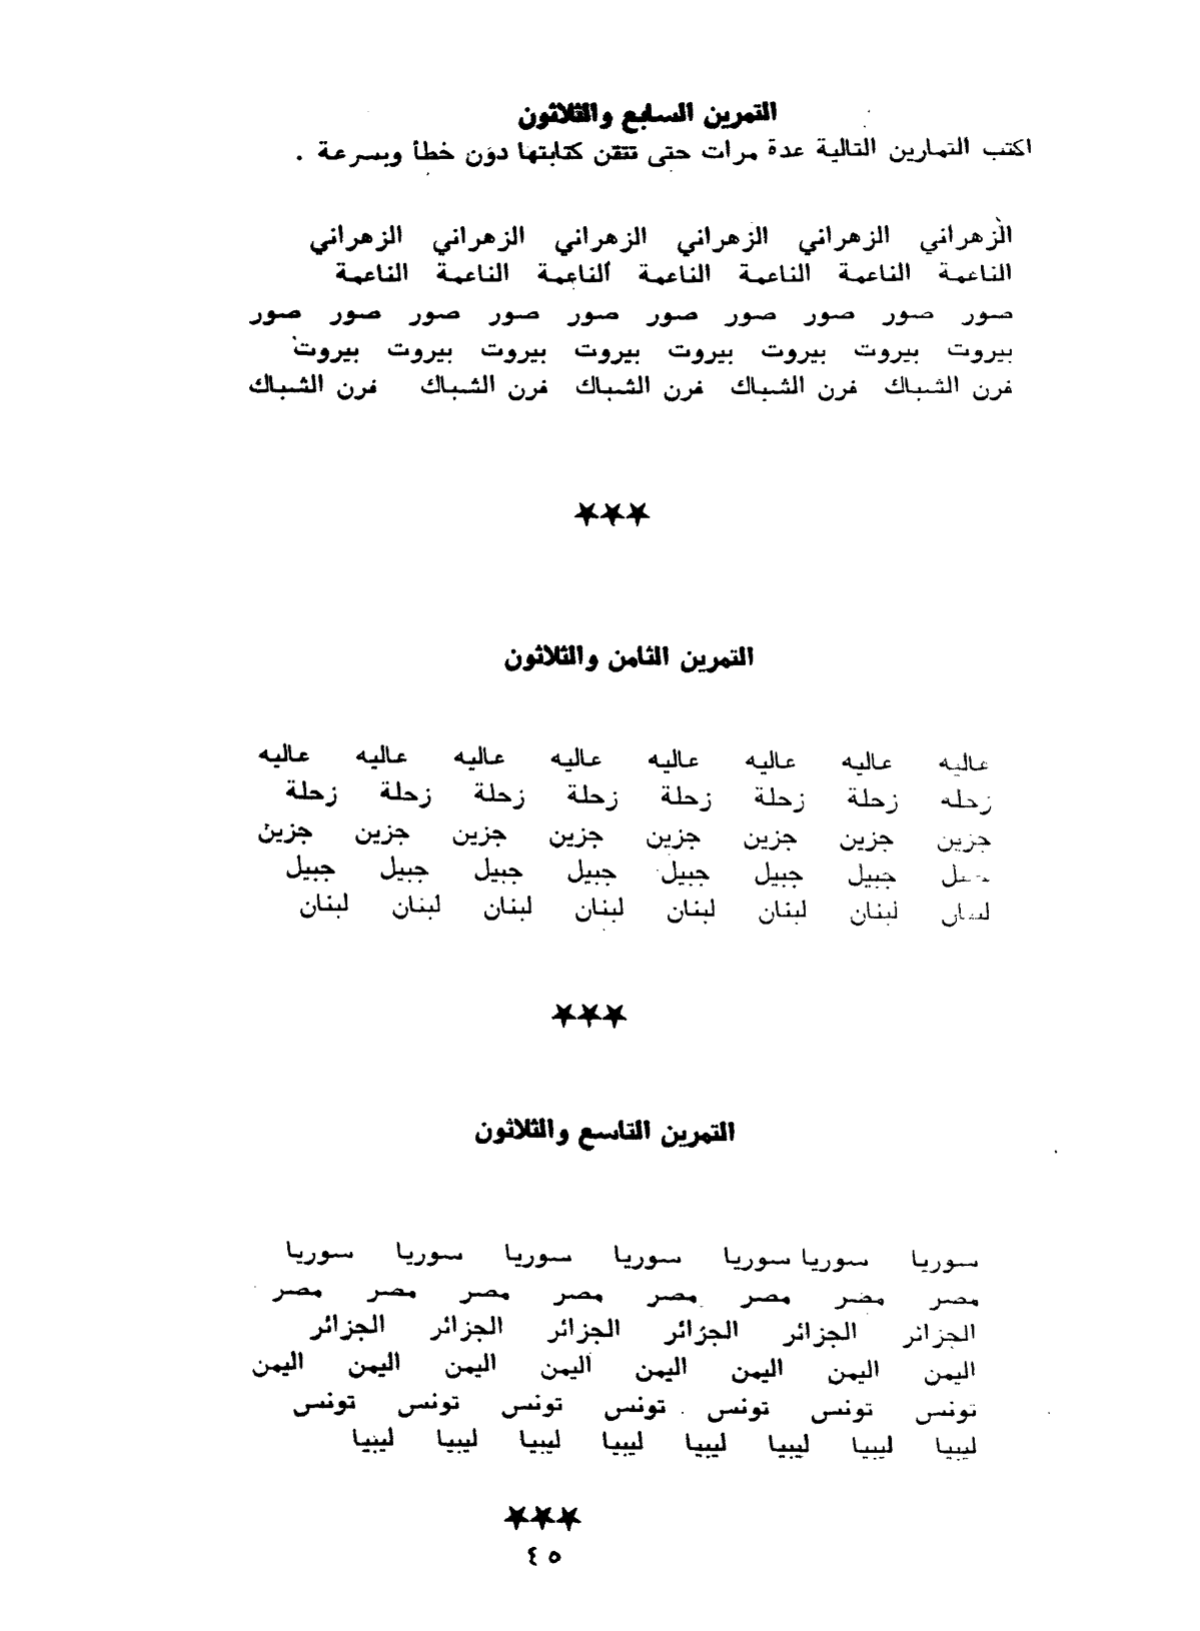 التمرين السابع والثلاثون
اكتب التمارين التالية عدة مرات حتى تتقن كتابتها دون خطأ وبسرعة .
الزهراني الزهراني الزهراني الزهراني الزهراني الزهراني
الناعمة الناعمة الناعمة الناعمة الناعمة الناعمة الناعمة
صور صور صور صور صور صور صور صور صور صور
بيروت بيروت بيروت بيروت بيروت بيروت بيروت بيروت
فرن الشباك فرن الشباك فرن الشباك فرن الشباك فرن الشباك
★★★
التمرين الثامن والثلاثون
عاليه عاليه عاليه عاليه عاليه عاليه عاليه عاليه
زحله زحلة زحلة زحلة زحلة زحلة زحلة زحلة
جزين جزين جزين جزين جزين جزين جزين جزين
جبيل جبيل جبيل جبيل جبيل جبيل جبيل جبيل
لبنان لبنان لبنان لبنان لبنان لبنان لبنان لبنان
★★★
التمرين التاسع والثلاثون
سوريا سوريا سوريا سوريا سوريا سوريا سوريا
مصر مصر مصر مصر مصر مصر مصر مصر
الجزائر الجزائر الجزائر الجزائر الجزائر الجزائر
اليمن اليمن اليمن اليمن اليمن اليمن اليمن اليمن
تونس تونس تونس تونس تونس تونس تونس
ليبيا ليبيا ليبيا ليبيا ليبيا ليبيا ليبيا ليبيا
★★★
٤٥